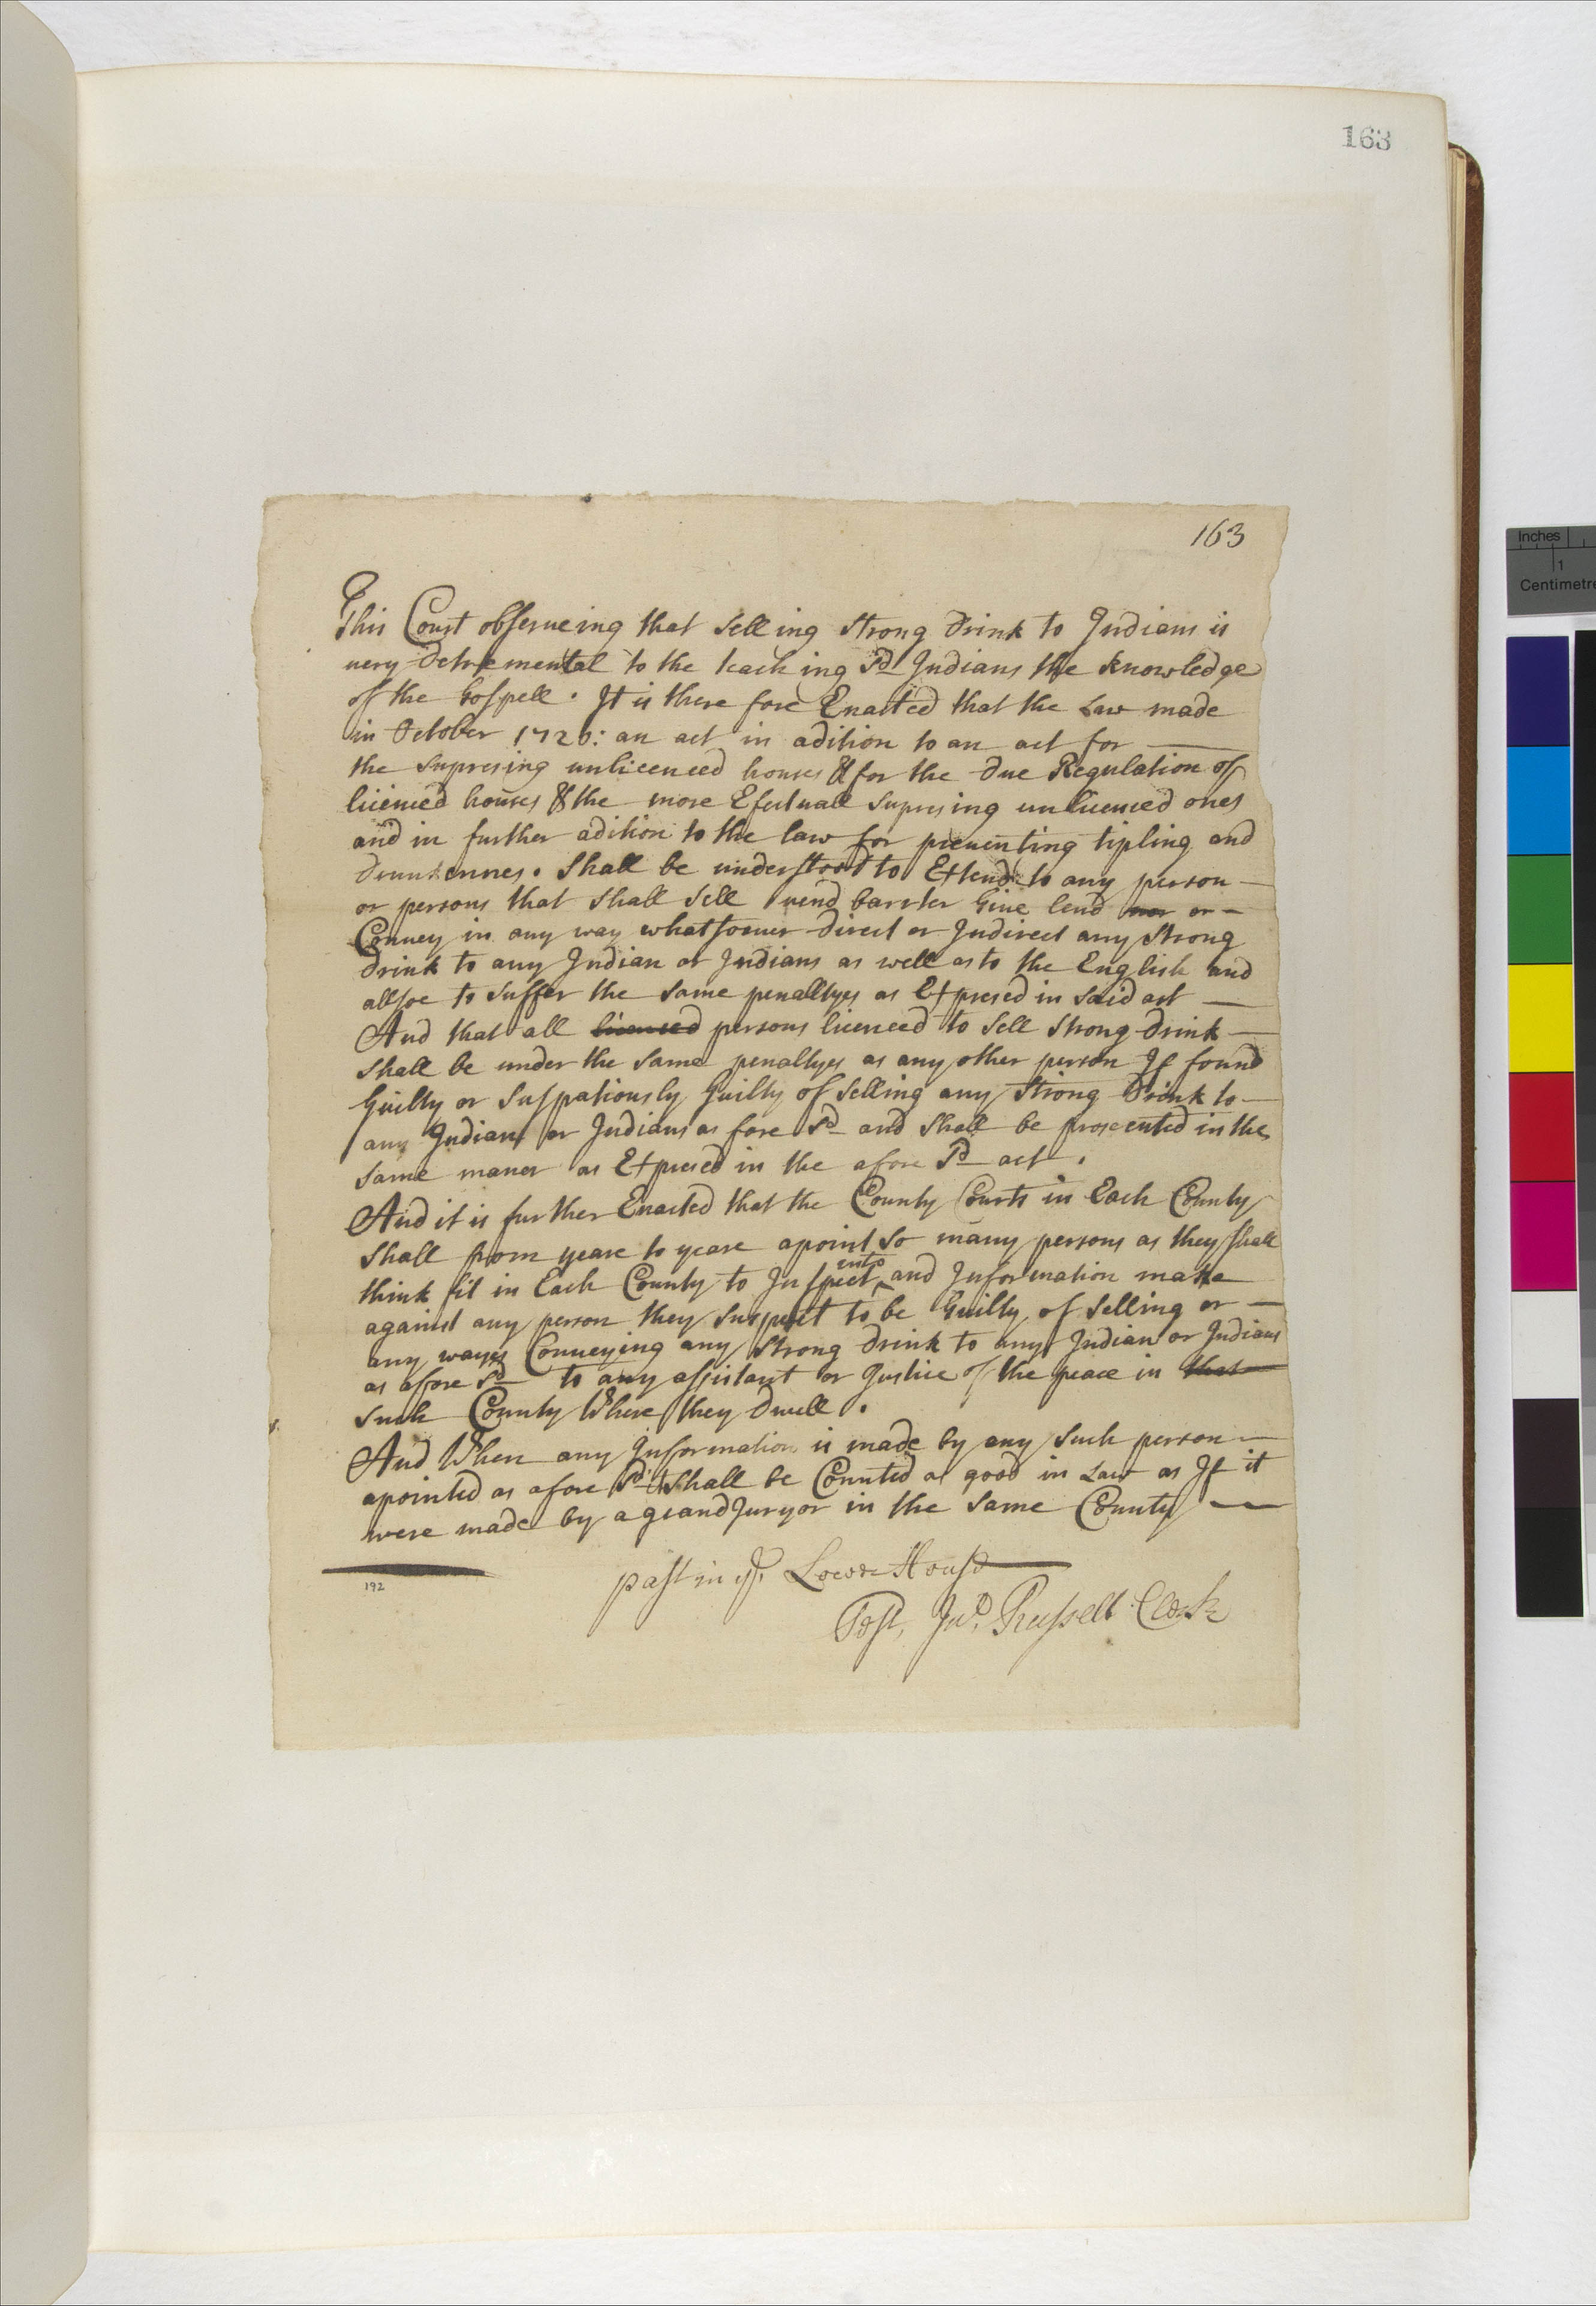 163
163
This Court obserueing that Selling Strong drink to Indians is
uery detremental to the teaching Sd Indians the knowledge
of the Gospell. It is there fore Enacted that the Law made
in October 1720: an act in adition to an act for
the Supresing unlicenced houses & for the due Regulation of
licenced houses & the more Efectuall Supresing unlicenced ones
and in further adition to the law for preuenting tipling and
drunkennes. Shall be understood to Extend to any person
or persons that Shall Sell uend barrter Giue lend nor or
Conuey in any way whatsoeuer direct or Indirect any Strong
drink to any Indian or Indians as well as to the English and
allsoe to Suffer the Same penaltyes as Expresed in Said act
And that all licensed persons licenced to Sell Strong drink
Shall be under the Same penaltyes as any other person If found
Guilty or Suspatiously Guilty of Selling any Strong Drink to
any Indian or Indians as fore Sd and Shall be prosecuted in the
Same maner as Expresed in the afore Sd act.
And it is further Enacted that the County Courts in Each County
Shall from yeare to yeare apoint So many persons as they Shall
think fit in Each County to Inspect into and Information make
against any person they Suspect to be Guilty of Selling or
any wayes Conueying any Strong drink to any Indian or Indians
as afore Sd to any assistant or Justice of the peace in that
Such County Where they Dwell.
And When any Information is made by any Such person
apointed as afore Sd it Shall be Counted as good in Law as If it
were made by a grandJuryor in the Same County
past in ye Lower House
Test, Jno. Russell Clerk
192
Inches
1
Centimetre